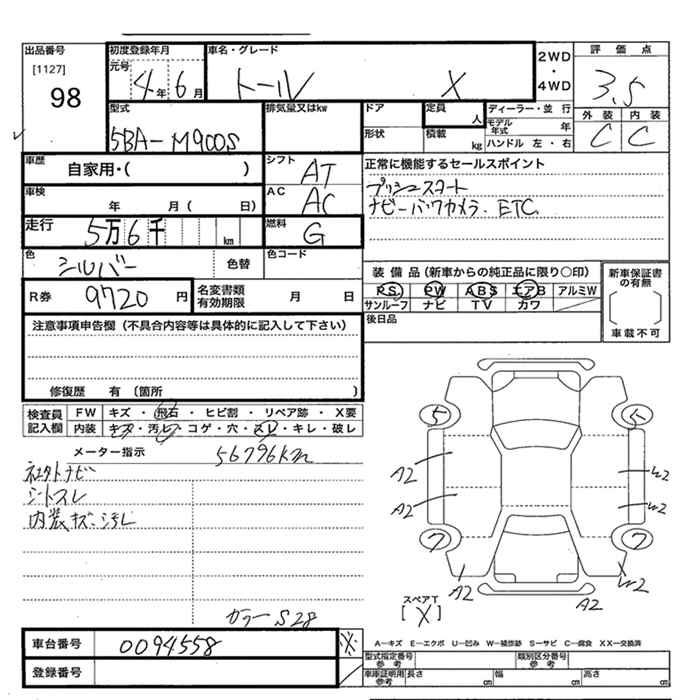 出品番号
[1127]
98
初度登録年月
元号
4年 6月
車名・グレード
トール X
2WD
・
4WD
評価点
3.5
外装 内装
C C
型式
5BA-M900S
排気量又はkw
ドア
形状
定員
人
積載
kg
ディーラー・並行
モデル年式 年
ハンドル 左・右
車歴
自家用・( )
シフト
AT
正常に機能するセールスポイント
プッシュスタート
ナビ-バックカメラ. ETC
車検
年 月 ( 日)
AC
AC
走行
5万6千 km
燃料
G
色
シルバー
色替
色コード
R券
9720円
名変書類
有効期限
月 日
装備品(新車からの純正品に限り○印)
P.S. PW ABS エアB アルミW
サンルーフ ナビ TV カワ
後日品
新車保証書
の有無
車載不可
注意事項申告欄(不具合内容等は具体的に記入して下さい)
修復歴 有(箇所 )
検査員
記入欄
FW キズ・飛石・ヒビ割・リペア跡・X要
内装 キズ・汚レ・コゲ・穴・スレ・キレ・破レ
メーター指示
56796km
社外ナビ
シートスレ
内装キズ・汚レ
カラーS28
5 5
A2 W2
A2 W2
7 7
A2 W2
A2
スペアT
[X]
車台番号
0094558
※
登録番号
A―キズ E―エクボ U―凹み W―補修跡 S―サビ C―腐食 XX―交換済
型式指定番号
参考
類別区分番号
参考
車庫証明用
参考
長さ cm 幅 cm 高さ cm